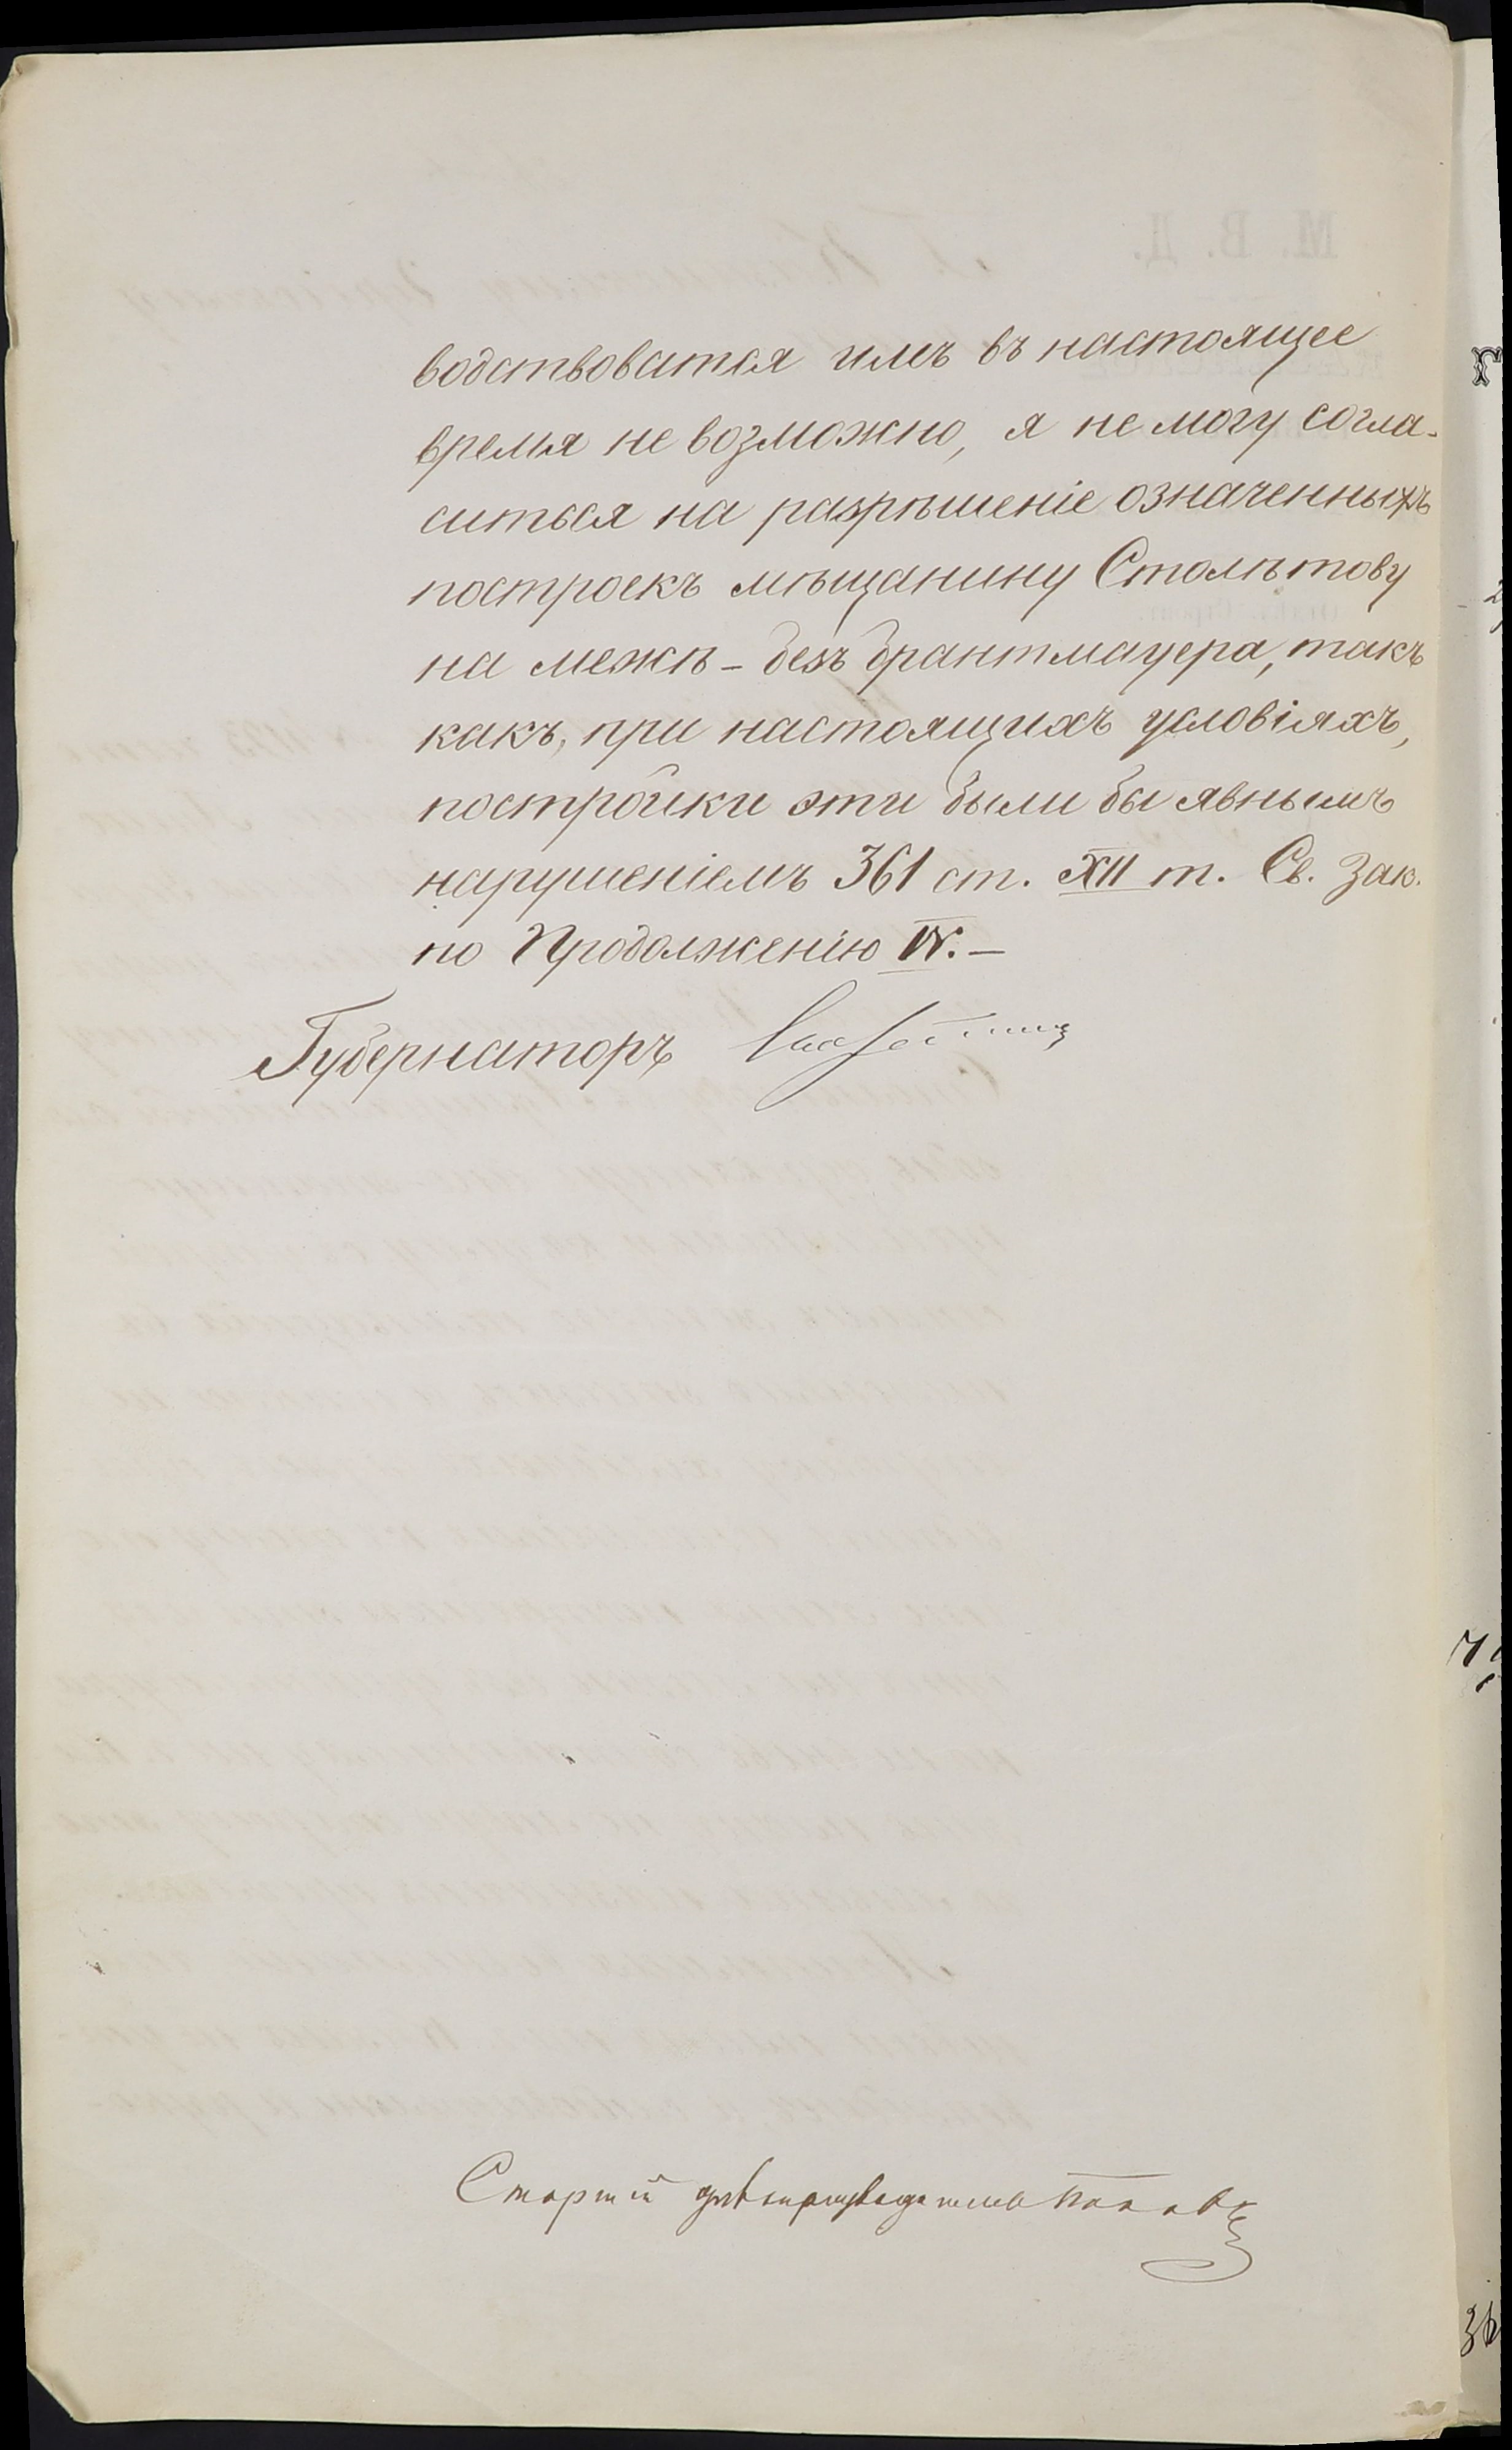 водствоватся имъ въ настоящее
время не возможно, я не могу согла-
ситься на разрѣшеніе означенныхъ
построекъ мѣщанину Столѣтову
на межѣ - безъ брантмауера, такъ
какъ, при настоящихъ условіяхъ,
постройки эти были бы явнымъ
нарушеніемъ 361 ст. XII т. Св. Зак.
по Продолженію IV. -
Губернаторъ
Старшій дѣлопроизводитель Поповъ